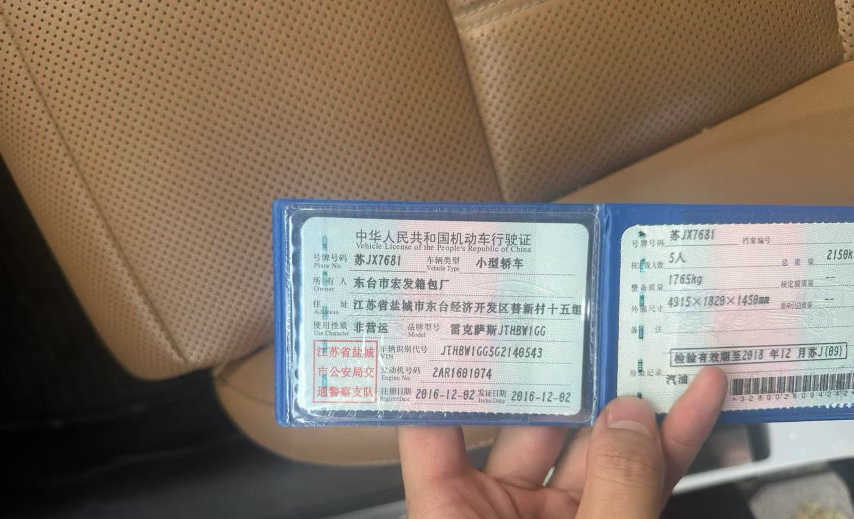 中华人民共和国机动车行驶证
Vehicle License of the People's Republic of China
号牌号码 苏JX7681 车辆类型 小型轿车
Plate No. Vehicle Type
所有人 东台市宏发箱包厂
Owner
住址 江苏省盐城市东台经济开发区普新村十五组
Address
使用性质 非营运 品牌型号 雷克萨斯JTHBW1GG
Use Character Model
江苏省盐城
市公安局交
通警察支队
车辆识别代号 JTHBW1GG5G2140543
VIN
发动机号码 2AR1601074
Engine No.
注册日期 2016-12-02 发证日期 2016-12-02
Register Date Issue Date
号牌号码 苏JX7681 档案编号
核定载人数 5人 总质量 2150k
整备质量 1765kg 核定载质量 --
外廓尺寸 4915×1820×1450mm 准牵引总质量 --
备注
检验有效期至2018 年12 月苏J(09)
检验记录
汽油